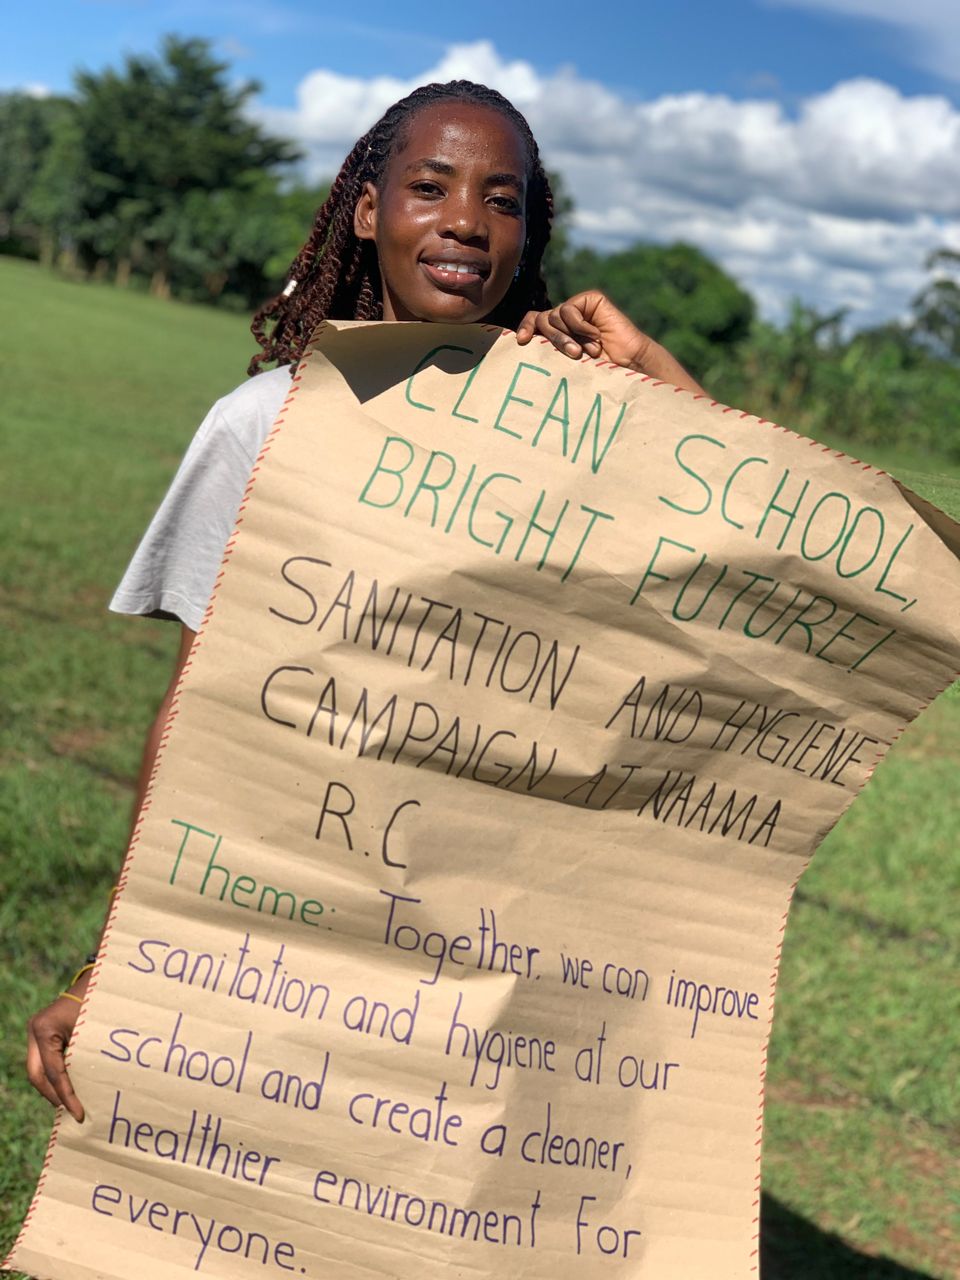 CLEAN SCHOOL,
BRIGHT FUTURE!
SANITATION AND HYGIENE
CAMPAIGN AT NAAMA
R.C
Theme: Together. we can improve
sanitation and hygiene at our
school and create a cleaner,
healthier environment for
everyone.